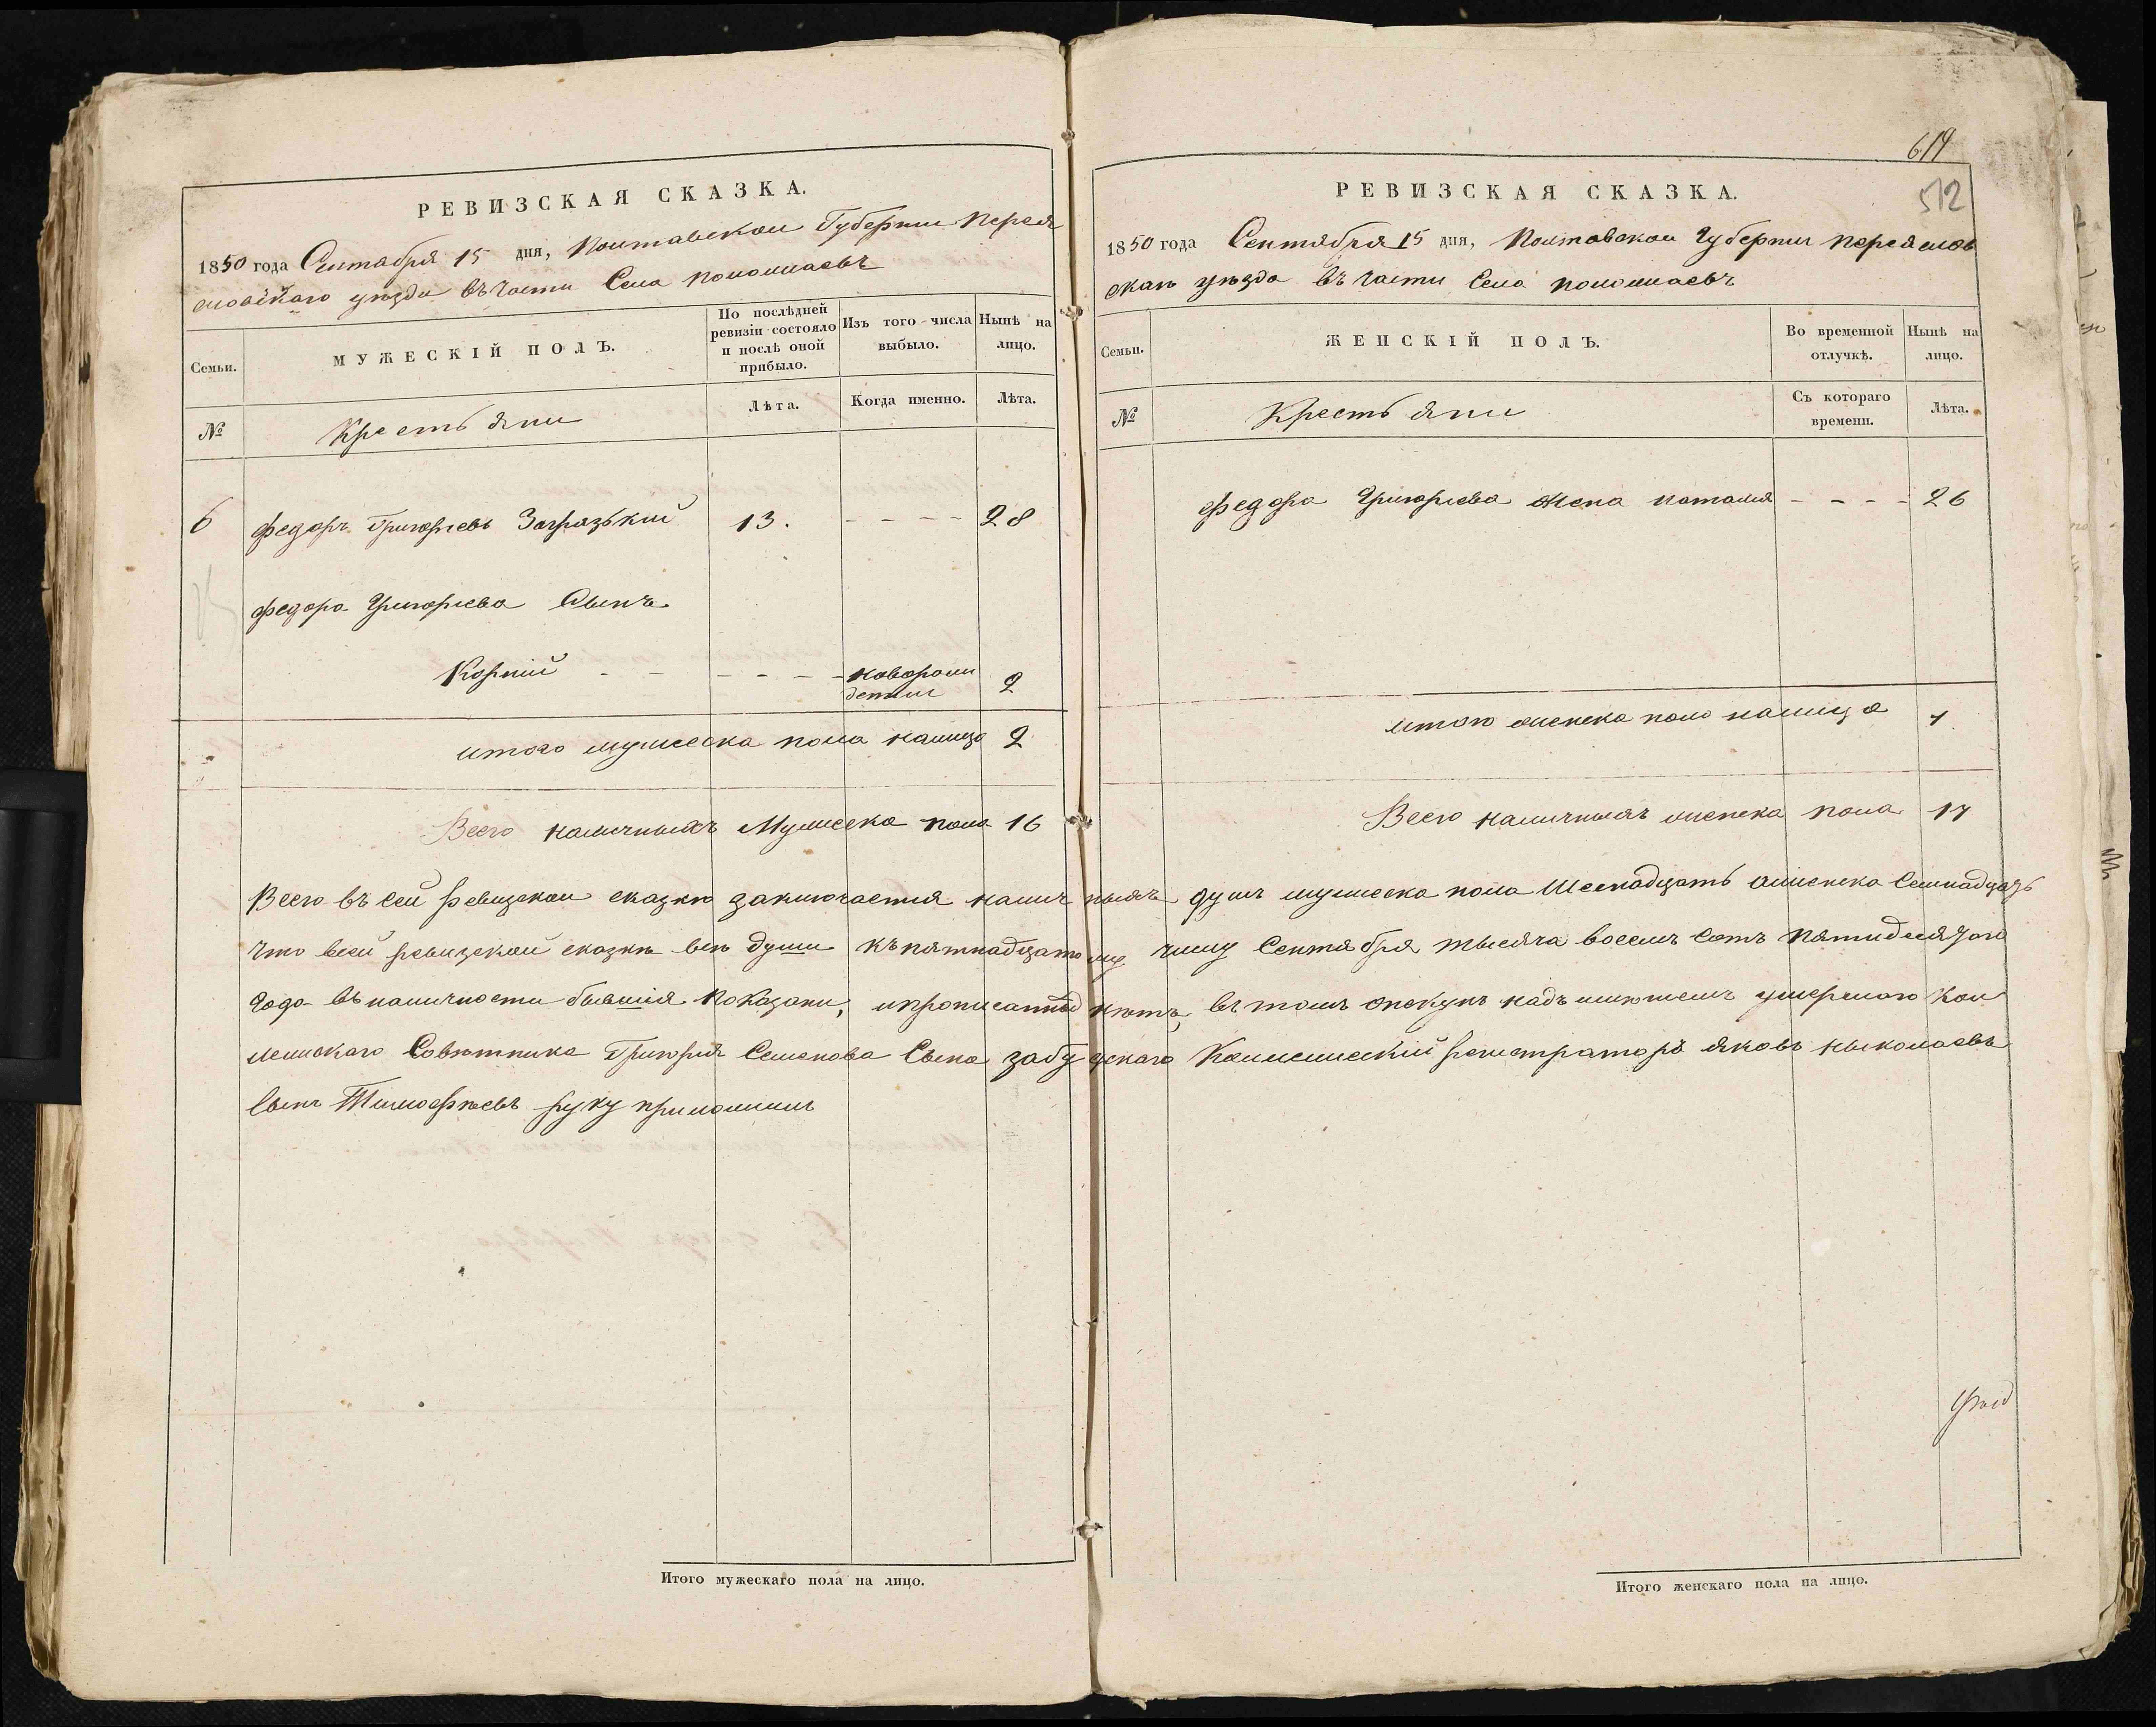 РЕВИЗСКАЯ СКАЗКА.
1850 года Сентября 15 дня, Полтавской Губернии Перея
словскаго уезда въ части Села Пологиаевъ
Семьи.
МУЖЕСКІЙ ПОЛЪ.
По послѣдней ревизіи состояло и послѣ оной прибыло.
Изъ того числа выбыло.
Нынѣ на лицо.
№
Крестьяни
Лѣта.
Когда именно.
Лѣта.
6 Федоръ Григорьевъ 13. - - - - 28
Федора Григорьева Сынъ
Корній - - - - - новорож
денни 2
итого мужеска пола налицо 2
Всего наличныхъ Мужеска пола 16
614
512
РЕВИЗСКАЯ СКАЗКА.
1850 года Сентября 15 дня, Полтавской Губернии Переяслов
скаго уезда въ части Села
Семьи.
ЖЕНСКІЙ ПОЛЪ.
Во временной отлучкѣ.
Нынѣ на лицо.
№
Крестьяни
Съ котораго времени.
Лѣта.
Федора Григорьева жена Наталия - - - - 26
итого женска пола налицо 1
Всего наличныхъ женска пола 17
Всего въ сей ревизской сказке заключается наличныхъ душъ мужеска пола Шеснадцать аженска Семнадцать
Что всей ревизской сказкѣ все души къ пятнадцатому числу Сентября тысяча восемъ сотъ пятидесятого
Года въ наличности бывшия показани, и прописанныхъ нетъ, въ томъ опекунъ надъ имениемъ умершаго Кол
лежскаго Советника Григория Семенова Сына Забудскаго Коллежеский регистраторъ Яковъ Николаевъ
Сынъ Тимофеевъ руку приложилъ
Итого мужескаго пола на лицо.
Итого женскаго пола на лицо.